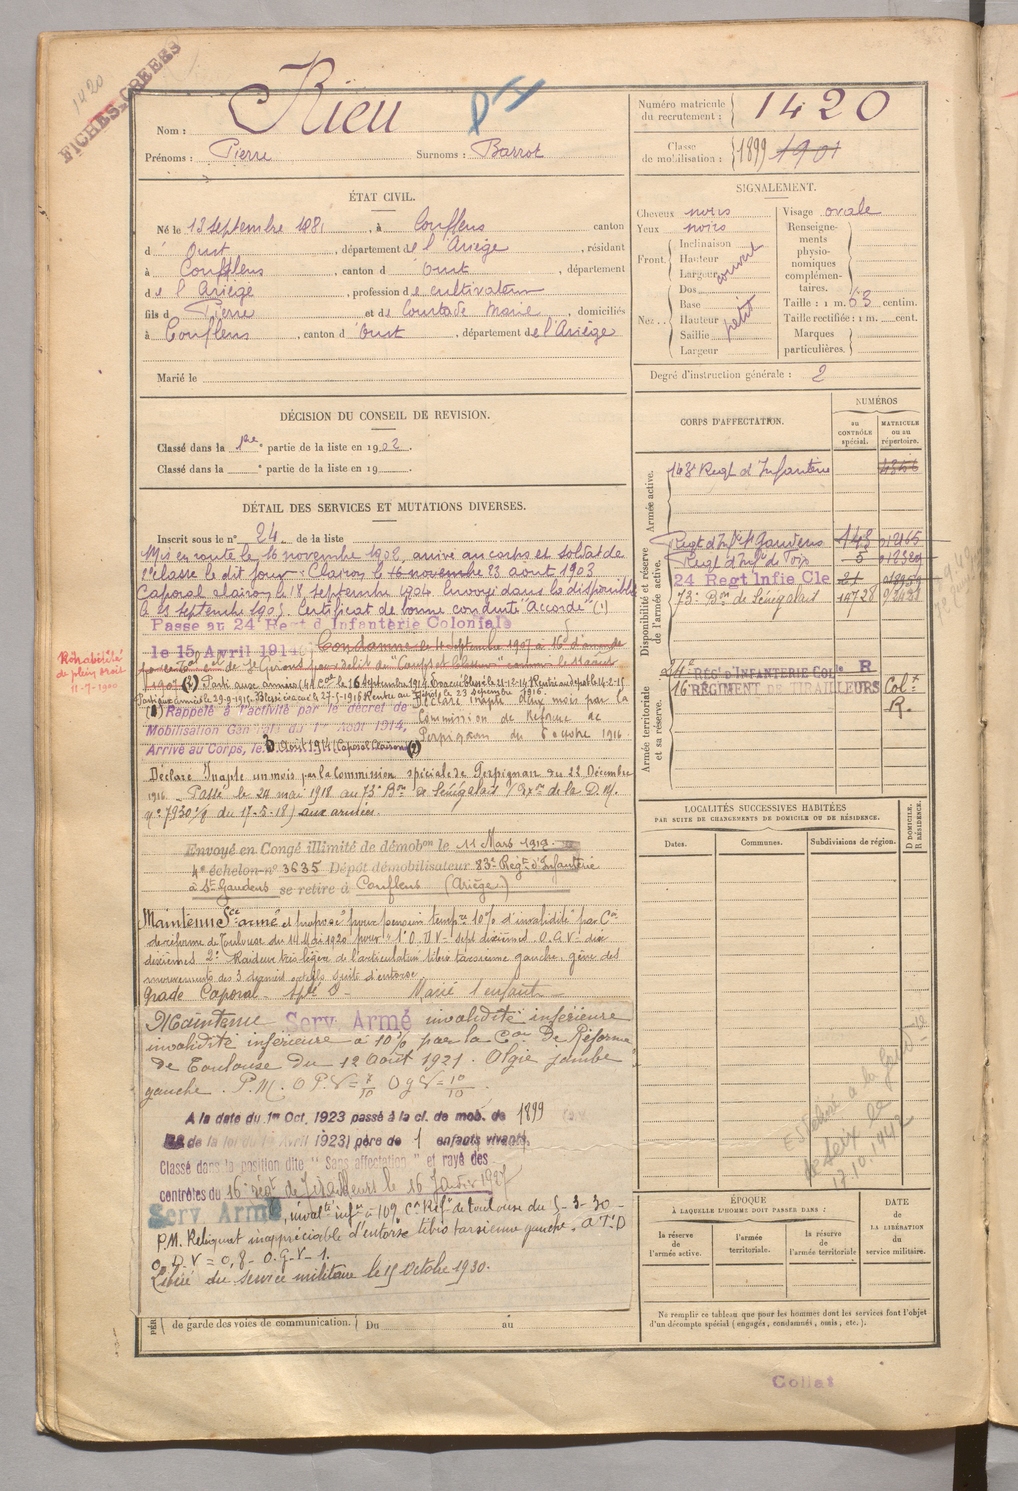 1420
FICHES CRÉÉES
Nom : Rieu
Prénoms : Pierre Surnoms : Barrot
Numéro matricule du recrutement : 1420
Classe de mobilisation : 1899 1901
ÉTAT CIVIL.
Né le 12 septembre 1881, à Couflens canton
d' Oust, département de l'Ariège, résidant
à Couflens, canton d'Oust, département
de l'Ariège, profession de cultivateur
fils de Pierre et de Courtade Marie, domiciliés
à Couflens, canton d'Oust, département de l'Ariège
Marié le
SIGNALEMENT.
Cheveux noirs
Yeux noirs
Front. Inclinaison
Hauteur
Largeur
couvert
Nez. Dos
Base
Hauteur
Saillie
Largeur
petit
Visage ovale
Renseignements physionomiques complémentaires.
Taille : 1 m. 63 centim.
Taille rectifiée : 1 m. cent.
Marques particulières.
Degré d'instruction générale : 2
DÉCISION DU CONSEIL DE REVISION.
Classé dans la 1re partie de la liste en 1902.
Classé dans la e partie de la liste en 19
DÉTAIL DES SERVICES ET MUTATIONS DIVERSES.
Inscrit sous le n° 24 de la liste
Mis en route le 16 novembre 1902, arrivé au corps et soldat de
2e classe le dit jour. Clairon le 16 novembre 23 août 1903
Caporal clairon le 18 septembre 1904. Envoyé dans la disponibilité
le 21 septembre 1905. Certificat de bonne conduite "Accordé" (1)
Passé au 24 Regt d'Infanterie Coloniale
le 15 Avril 1914 Condamné le 4 septembre 1907 à 16f d'amende
de St Girons pour délit de "Coups et blessures"
1907 (2) Parti aux armées le 16 septembre 1914. Evacué blessé le 21-12-14 Rentré au dépôt le 14-2-15
Parti aux armées le 29-9-1915. Blessé évacué le 27-5-1916 Rentré au dépôt le 23 septembre 1916.
(1) Rappelé à l'activité par le décret de
Mobilisation Générale du 1er Août 1914,
Arrivé au Corps, le 3 août 1914 (Caporal Clairon) (2)
Déclaré inapte deux mois par la
Commission de Réforme de
Perpignan du 6 octobre 1916
Déclaré Inapte un mois par la Commission spéciale de Perpignan du 22 Décembre
1916. Passé le 24 mai 1918 au 73e Bon de Sénégalais
n° 7930/8 du 17-5-18) aux armées.
Réhabilité
de plein droit
Envoyé en Congé illimité de démobon le 11 Mars 1919
4e échelon n° 3635 Dépôt démobilisateur 83e Regt d'Infanterie
à St Gaudens se retire à Couflens (Ariège)
Maintenu Sce armé et proposé pour pension tempre 10% d'invalidité par Con
de réforme de Toulouse du 14 Mai 1920 pour 1° O.D.V = sept dixièmes O.G.V = dix
dixièmes 2° Raideur très légère de l'articulation tibio tarsienne gauche, gêne des
mouvements des 3 derniers orteils suite d'entorse
Grade Caporal. Marié 1 enfant
Maintenu Serv. Armé invalidité inférieure
invalidité inférieure à 10% par la Con De Réforme
de Toulouse du 12 Août 1921. Algie jambe
gauche. P.M. O.D.V = 7/10 O.G.V = 10/10.
A la date du 1er Oct. 1923 passé à la cl. de mob. de 1899
de la loi du 1er Avril 1923) père de 1 enfants vivants.
Classé dans la position dite "Sans affectation" et rayé des
contrôles du 16e régt de Tirailleurs le 16 Janvier 1927
Serv. Armé, invalté infre à 10% Con Réf. de Toulouse du 5-3-30
P.M. Reliquat inappréciable d'entorse tibio tarsienne gauche.
O.D.V = 0,8 - O.G.V = 1.
Libéré du service militaire le 15 Octobre 1930.
de garde des voies de communication. Du au
CORPS D'AFFECTATION.
NUMÉROS
au CONTRÔLE spécial.
MATRICULE ou au répertoire.
Armée active.
143e Regt d'Infanterie
Disponibilité et réserve de l'armée active.
Regt d'Infie St Gaudens 143
Regt d'Infie de Foix 5
24 Regt Infie Cle 21
73e Bon de Sénégalais
Armée territoriale et sa réserve.
24e REGt D'INFANTERIE COLle R
16e RÉGIMENT DE TIRAILLEURS Colx
R.
LOCALITÉS SUCCESSIVES HABITÉES
PAR SUITE DE CHANGEMENTS DE DOMICILE OU DE RÉSIDENCE.
Dates.
Communes.
Subdivisions de région.
D DOMICILE.
R RÉSIDENCE.
de Seix le
17.10.1942
ÉPOQUE
À LAQUELLE L'HOMME DOIT PASSER DANS :
la réserve de l'armée active.
l'armée territoriale.
la réserve de l'armée territoriale
DATE DE LA LIBÉRATION DU service militaire.
Ne remplir ce tableau que pour les hommes dont les services font l'objet
d'un décompte spécial (engagés, condamnés, omis, etc.).